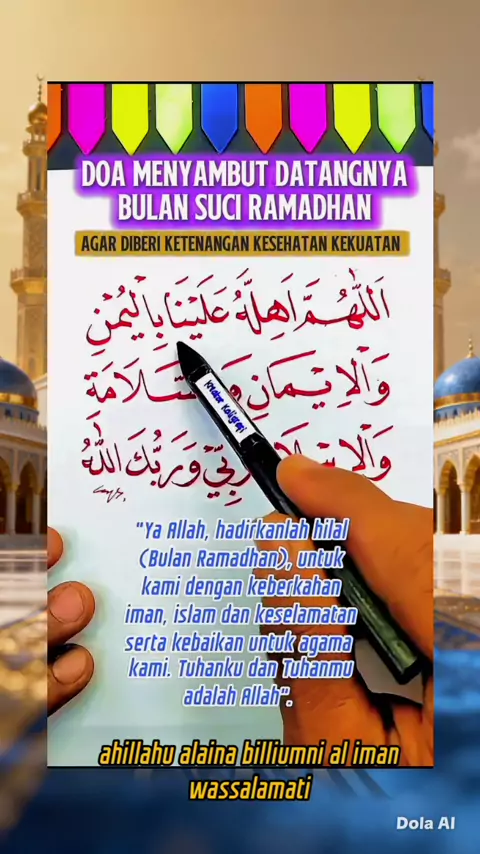 DOA MENYAMBUT DATANGNYA
BULAN SUCI RAMADHAN
AGAR DIBERI KETENANGAN KESEHATAN KEKUATAN
اَللّٰهُمَّ اَهِلَّهُ عَلَيْنَا بِالْيُمْنِ
وَالْاِيْمَانِ وَالسَّلَامَةِ
وَالْاِسْلَامِ رَبِّيْ وَرَبُّكَ اللّٰهُ
"Ya Allah, hadirkanlah hilal
(Bulan Ramadhan), untuk
kami dengan keberkahan
iman, islam dan keselamatan
serta kebaikan untuk agama
kami. Tuhanku dan Tuhanmu
adalah Allah".
ahillahu alaina billiumni al iman
wassalamati
Dola AI